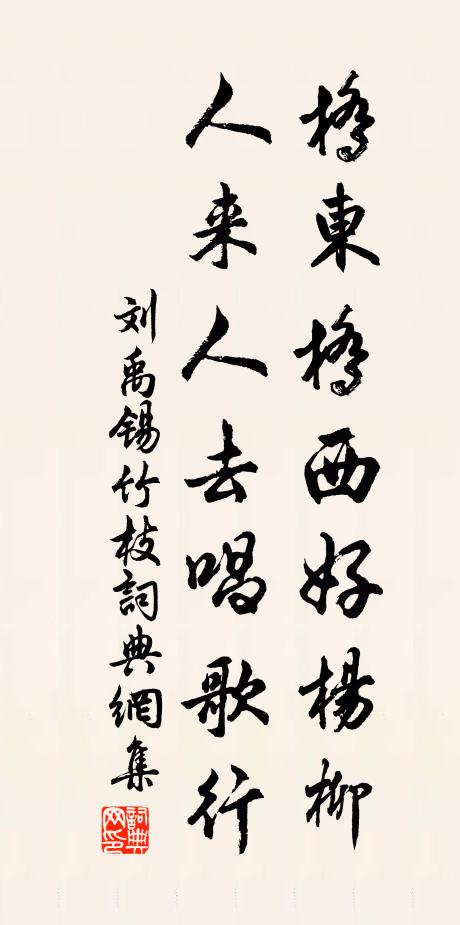 橋東橋西好楊柳
人来人去唱歌行
刘禹锡竹枝詞典網集
詞典网印